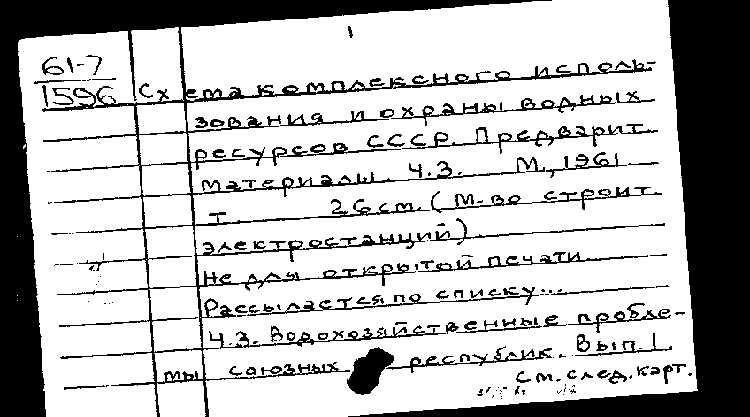 1
61-7
1596
Схема комплексного исполь-
зования и охраны водных
ресурсов СССР. Предварит.
материалы. Ч.3. М., 1961
т. 26см. (М-во строит.
электростанций).
Не для открытой печати.
Рассылается по списку...
Ч.3. Водохозяйственные пробле-
мы союзных республик. Вып. 1.
См. след. карт.